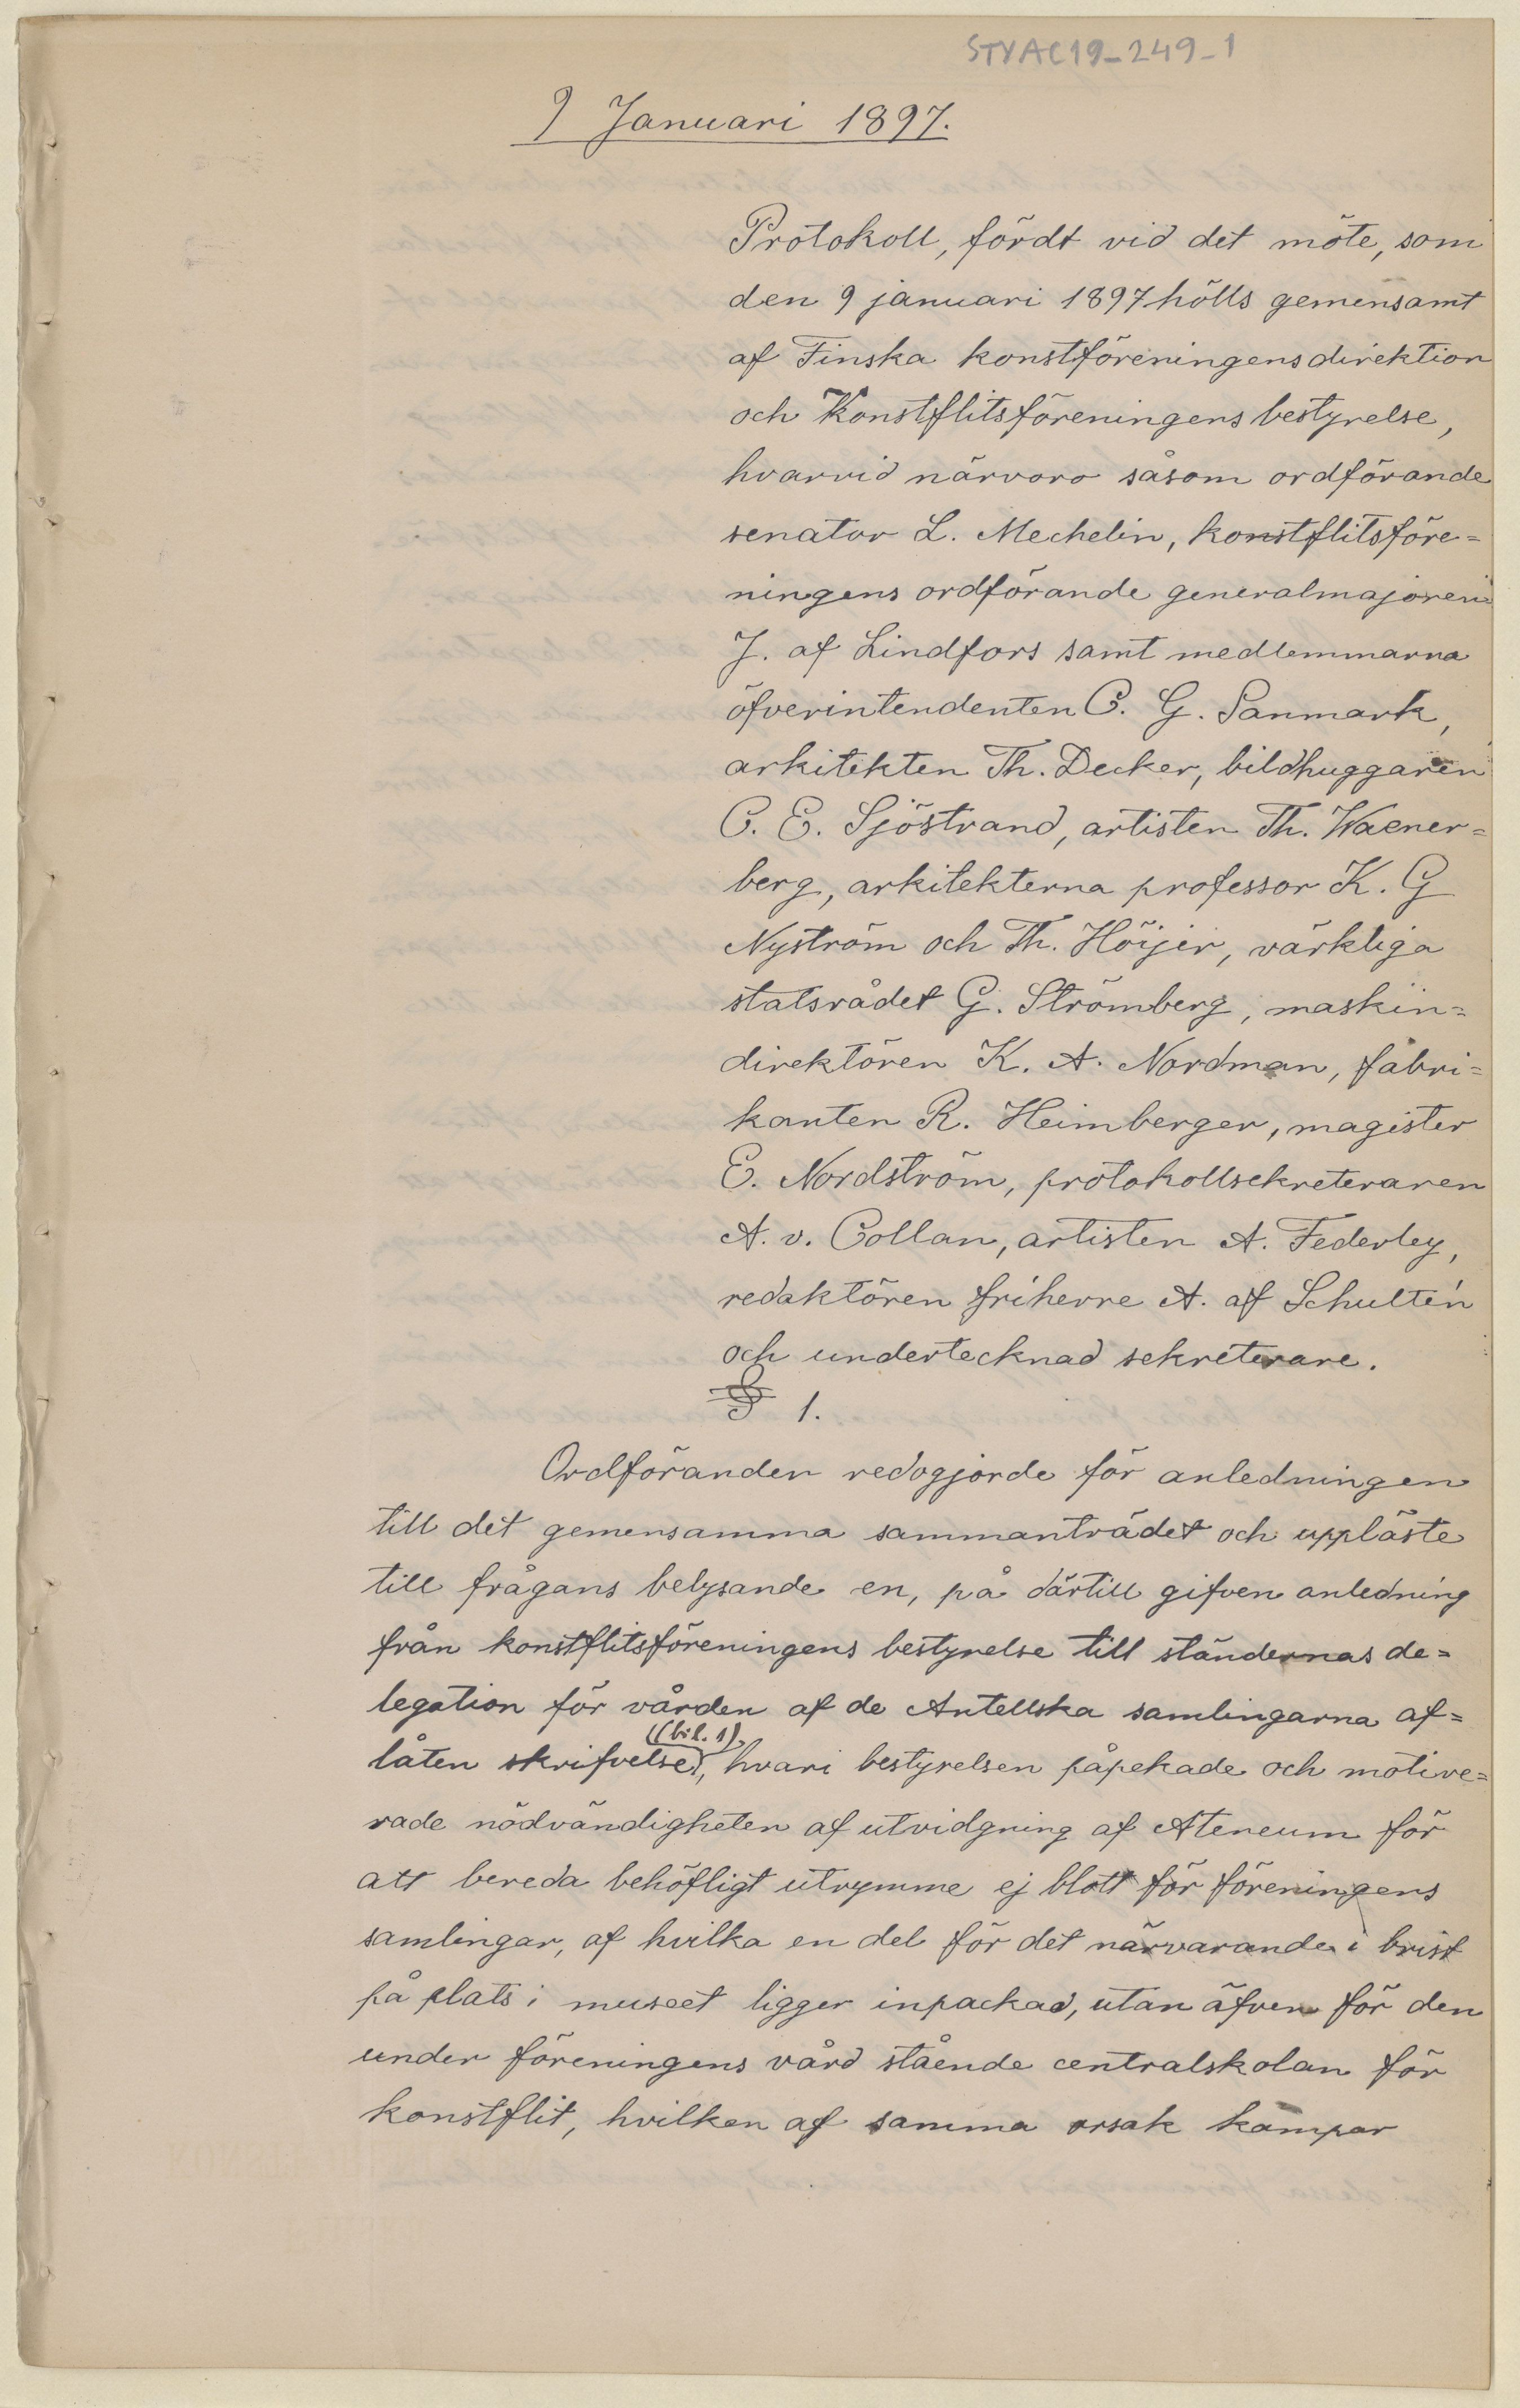 STYAC19_249_1
9 Januari 1897.
Protokoll, fördt vid det möte, som
den 9 januari 1897 hölls gemensamt
af Finska konstföreningens direktion
och Konstflitsföreningens bestyrelse,
hvarvid närvoro såsom ordförande
senator L. Mechelin, konstflitsföre=
ningens ordförande generalmajoren
J. af Lindfors samt medlemmarna
öfverintendenten C. G. Sanmark,
arkitekten Th. Decker, bildhuggaren
C. E. Sjöstrand, artisten Th. Waener=
berg, arkitekterna professor K. G
Nyström och Th. Höijer, värkliga
statsrådet G. Strömberg, maskin=
direktören K. A. Nordman, fabri=
kanten R. Heimberger, magister
E. Nordström, protokollsekreteraren
A. v. Collan, artisten A. Federley,
redaktören friherre A. af Schultén
och undertecknad sekreterare.
§ 1.
Ordföranden redogjorde för anledningen
till det gemensamma sammanträdet och uppläste
till frågans belysande en, på därtill gifven anledning
från konstflitsföreningens bestyrelse till ständernas de=
legation för vården af de Antellska samlingarna af=
(bil. 1)
låten skrifvelse, hvari bestyrelsen påpekade och motive=
rade nödvändigheten af utvidgning af Ateneum för
att bereda behöfligt utrymme ej blott för föreningens
samlingar, af hvilka en del för det närvarande i brist
på plats i museet ligger inpackad, utan äfven för den
under föreningens vård stående centralskolan för
konstflit, hvilken af samma orsak kämpar